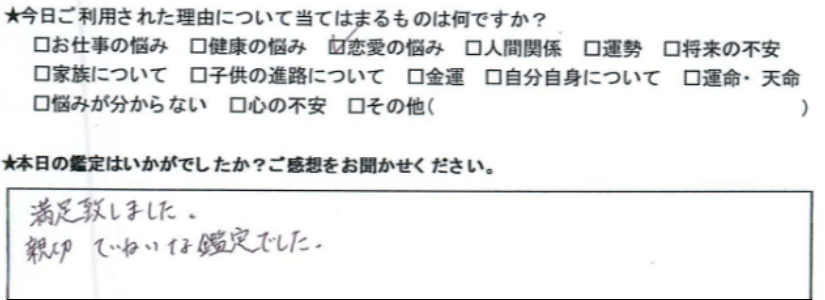 ★今日ご利用された理由について当てはまるものは何ですか？
□お仕事の悩み　□健康の悩み　☑恋愛の悩み　□人間関係　□運勢　□将来の不安
□家族について　□子供の進路について　□金運　□自分自身について　□運命・天命
□悩みが分からない　□心の不安　□その他(　　　　　　　　　　　　　　　　)
★本日の鑑定はいかがでしたか？ご感想をお聞かせください。
満足致しました。
親切 ていねいな鑑定でした。